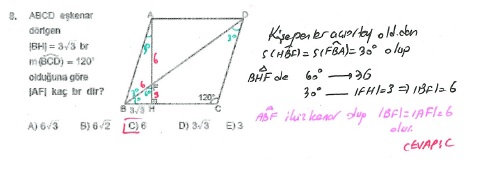 8. ABCD eşkenar
dörtgen
|BH| = 3√3 br
m(BCD) = 120°
olduğuna göre
|AF| kaç br dir?
A D
30°
6
3
120°
B 3√3 H C
A) 6√3 B) 6√2 C) 6 D) 3√3 E) 3
Köşegenler açıortay old.dan
S(HBF) = S(FBA) = 30° olup
BHF de 60° → 3√3
30° — |FH| = 3 ⇒ |BF| = 6
ABF ikizkenar olup |BF| = |AF| = 6
olur.
CEVAP: C